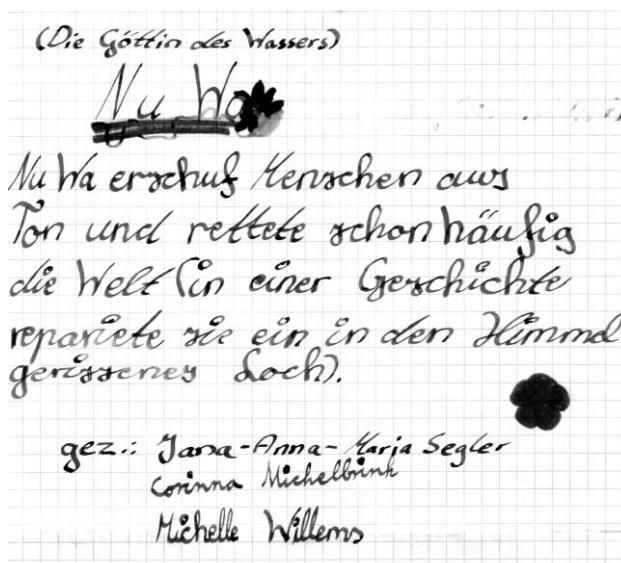 (Die Göttin des Wassers)
Nu Wa
Nu Wa erschuf Menschen aus
Ton und rettete schon häufig
die Welt (in einer Geschichte
repariete sie ein in den Himmel
gerissenes Loch).
gez.: Jana-Anna-Maria Segler
Corinna Michelbrink
Michelle Willems